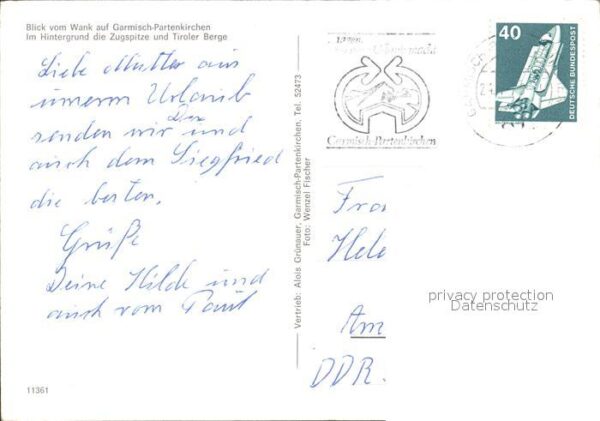 Blick vom Wank auf Garmisch-Partenkirchen
Im Hintergrund die Zugspitze und Tiroler Berge
Liebe Mutter aus
unserm Urlaub
senden wir Dir und
auch dem Siegfried
die besten
Grüße
Deine Hilde und
auch vom Paul
11361
Vertrieb: Alois Grünauer, Garmisch-Partenkirchen, Tel. 52473
Foto: Wenzel Fischer
Garmisch-Partenkirchen
40
DEUTSCHE BUNDESPOST
Frau
Hele
Am
DDR.
privacy protection
Datenschutz